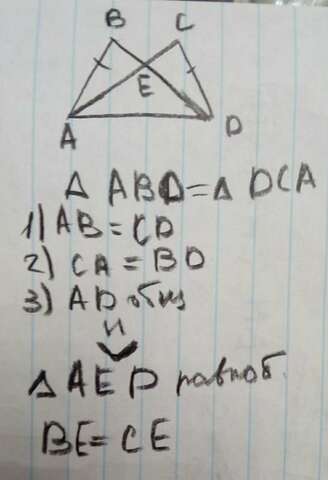 B C
E
A D
Δ ABD = Δ DCA
1) AB = CD
2) CA = BD
3) AD общ
Δ AED равноб.
BE = CE